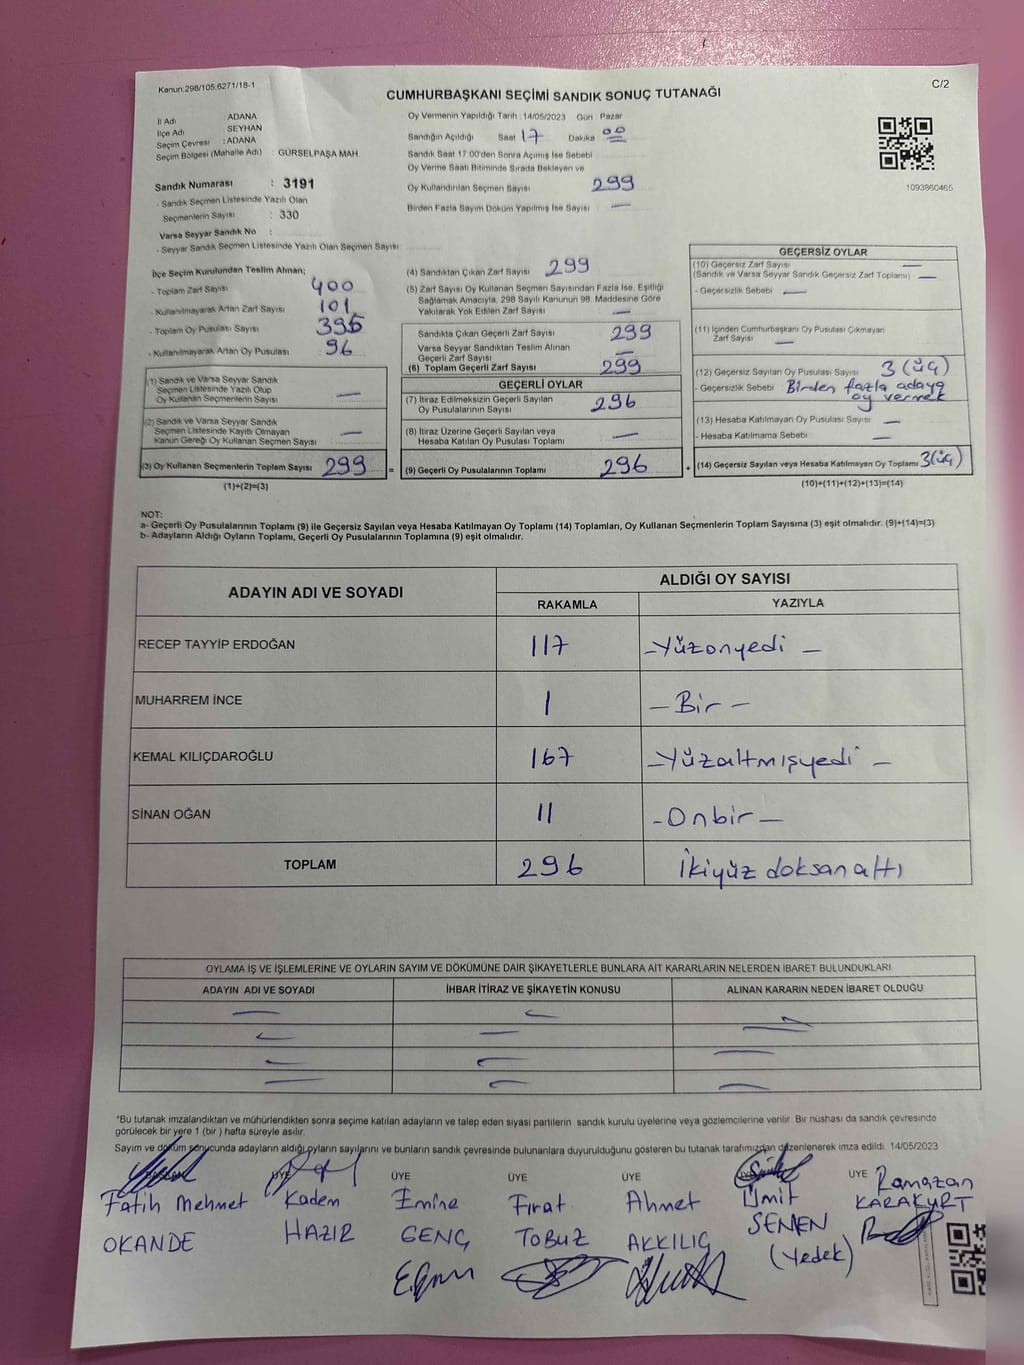 Kanun:298/105,6271/18-1
C/2
CUMHURBAŞKANI SEÇİMİ SANDIK SONUÇ TUTANAĞI
İl Adı ADANA
İlçe Adı SEYHAN
Seçim Çevresi : ADANA
Seçim Bölgesi (Mahalle Adı) : GÜRSELPAŞA MAH
Sandık Numarası : 3191
- Sandık Seçmen Listesinde Yazılı Olan
Seçmenlerin Sayısı : 330
Varsa Seyyar Sandık No :
- Seyyar Sandık Seçmen Listesinde Yazılı Olan Seçmen Sayısı:
Oy Vermenin Yapıldığı Tarih : 14/05/2023 Gün Pazar
Sandığın Açıldığı Saat 17 Dakika 00
Sandık Saat 17.00'den Sonra Açımış İse Sebebi
Oy Verme Saati Bitiminde Sırada Bekleyen ve
Oy Kullandırılan Seçmen Sayısı 299
Birden Fazla Sayım Döküm Yapılmış İse Sayısı —
1093860465
İlçe Seçim Kurulundan Teslim Alınan;
- Toplam Zarf Sayısı 400
- Kullanılmayarak Artan Zarf Sayısı 101
- Toplam Oy Pusulası Sayısı 395
- Kullanılmayarak Artan Oy Pusulası 96
(1) Sandık ve Varsa Seyyar Sandık
Seçmen Listesinde Yazılı Olup
Oy Kullanan Seçmenlerin Sayısı —
(2) Sandık ve Varsa Seyyar Sandık
Seçmen Listesinde Kayıtlı Olmayan
Kanun Gereği Oy Kullanan Seçmen Sayısı —
(3) Oy Kullanan Seçmenlerin Toplam Sayısı 299 =
(1)+(2)=(3)
(4) Sandıktan Çıkan Zarf Sayısı 299
(5) Zarf Sayısı Oy Kullanan Seçmen Sayısından Fazla İse, Eşitliği
Sağlamak Amacıyla, 298 Sayılı Kanunun 98. Maddesine Göre
Yakılarak Yok Edilen Zarf Sayısı —
Sandıkta Çıkan Geçerli Zarf Sayısı 299
Varsa Seyyar Sandıktan Teslim Alınan
Geçerli Zarf Sayısı —
(6) Toplam Geçerli Zarf Sayısı 299
GEÇERLİ OYLAR
(7) İtiraz Edilmeksizin Geçerli Sayılan
Oy Pusulalarının Sayısı 296
(8) İtiraz Üzerine Geçerli Sayılan veya
Hesaba Katılan Oy Pusulası Toplamı —
(9) Geçerli Oy Pusulalarının Toplamı 296 +
GEÇERSİZ OYLAR
(10) Geçersiz Zarf Sayısı —
(Sandık ve Varsa Seyyar Sandık Geçersiz Zarf Toplamı) —
- Geçersizlik Sebebi —
(11) İçinden Cumhurbaşkanı Oy Pusulası Çıkmayan
Zarf Sayısı —
(12) Geçersiz Sayılan Oy Pusulası Sayısı 3 (üç)
- Geçersizlik Sebebi Birden fazla adaya
oy vermek
(13) Hesaba Katılmayan Oy Pusulası Sayısı —
- Hesaba Katılmama Sebebi —
(14) Geçersiz Sayılan veya Hesaba Katılmayan Oy Toplamı 3(üç)
(10)+(11)+(12)+(13)=(14)
NOT:
a- Geçerli Oy Pusulalarının Toplamı (9) ile Geçersiz Sayılan veya Hesaba Katılmayan Oy Toplamı (14) Toplamları, Oy Kullanan Seçmenlerin Toplam Sayısına (3) eşit olmalıdır. (9)+(14)=(3)
b- Adayların Aldığı Oyların Toplamı, Geçerli Oy Pusulalarının Toplamına (9) eşit olmalıdır.
ADAYIN ADI VE SOYADI ALDIĞI OY SAYISI
RAKAMLA YAZIYLA
RECEP TAYYİP ERDOĞAN 117 -Yüzonyedi -
MUHARREM İNCE 1 - Bir -
KEMAL KILIÇDAROĞLU 167 -Yüzaltmışyedi -
SİNAN OĞAN 11 -Onbir-
TOPLAM 296 İkiyüz doksan altı
OYLAMA İŞ VE İŞLEMLERİNE VE OYLARIN SAYIM VE DÖKÜMÜNE DAİR ŞİKAYETLERLE BUNLARA AİT KARARLARIN NELERDEN İBARET BULUNDUKLARI
ADAYIN ADI VE SOYADI İHBAR İTİRAZ VE ŞİKAYETİN KONUSU ALINAN KARARIN NEDEN İBARET OLDUĞU
*Bu tutanak imzalandıktan ve mühürlendikten sonra seçime katılan adayların ve talep eden siyasi partilerin sandık kurulu üyelerine veya gözlemcilerine verilir. Bir nüshası da sandık çevresinde
görülecek bir yere 1 (bir) hafta süreyle asılır.
Sayım ve döküm sonucunda adayların aldığı oyların sayılarını ve bunların sandık çevresinde bulunanlara duyurulduğunu gösteren bu tutanak tarafımızdan düzenlenerek imza edildi. 14/05/2023
ÜYE ÜYE ÜYE ÜYE ÜYE
Fatih Mehmet Kadem Emine Fırat Ahmet Ümit Ramazan
OKANDE HAZIR GENÇ TOBUZ AKKILIÇ SEMEN KARAKURT
(Yedek)